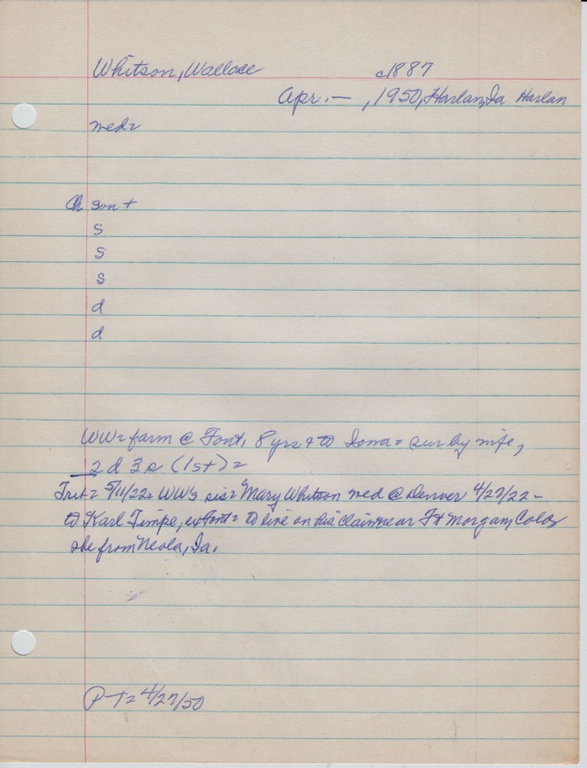 Whitson, Wallace c1887
Apr. — , 1950, Harlan, Ia Harlan
med=
Ch son +
S
S
S
d
d
WW= farm @ Font, 8 yrs + to Iowa = sur by wife,
2 d 3 s (1st) =
Trib= 5/11/22= WW's sis= Mary Whitson med @ Denver 4/27/22 -
to Karl Timpe, ex Font= to live on his claim near Ft Morgan, Colo
she from Neola, Ia.
P-T= 4/27/50